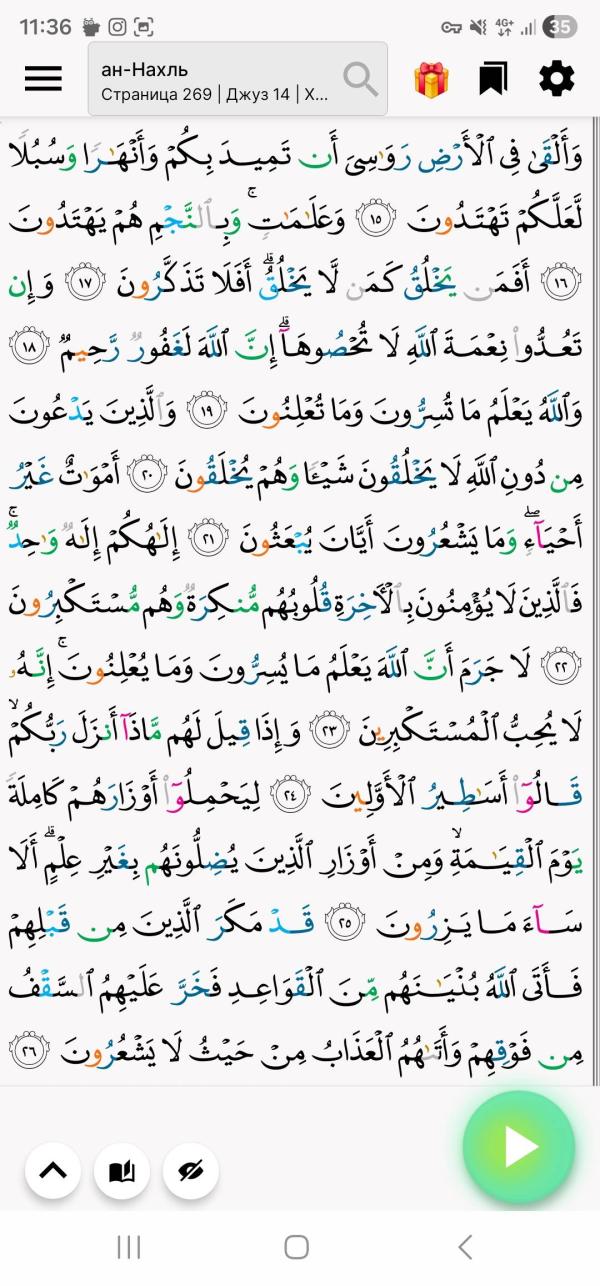 11:36 4G+ 35
ан-Нахль
Страница 269 | Джуз 14 | Х...
وَأَلْقَىٰ فِى ٱلْأَرْضِ رَوَٰسِىَ أَن تَمِيدَ بِكُمْ وَأَنْهَٰرًا وَسُبُلًا
لَّعَلَّكُمْ تَهْتَدُونَ ١٥ وَعَلَٰمَٰتٍ ۚ وَبِٱلنَّجْمِ هُمْ يَهْتَدُونَ
١٦ أَفَمَن يَخْلُقُ كَمَن لَّا يَخْلُقُ ۗ أَفَلَا تَذَكَّرُونَ ١٧ وَإِن
تَعُدُّوا۟ نِعْمَةَ ٱللَّهِ لَا تُحْصُوهَآ ۗ إِنَّ ٱللَّهَ لَغَفُورٌ رَّحِيمٌ ١٨
وَٱللَّهُ يَعْلَمُ مَا تُسِرُّونَ وَمَا تُعْلِنُونَ ١٩ وَٱلَّذِينَ يَدْعُونَ
مِن دُونِ ٱللَّهِ لَا يَخْلُقُونَ شَيْـًٔا وَهُمْ يُخْلَقُونَ ٢٠ أَمْوَٰتٌ غَيْرُ
أَحْيَآءٍ ۖ وَمَا يَشْعُرُونَ أَيَّانَ يُبْعَثُونَ ٢١ إِلَٰهُكُمْ إِلَٰهٌ وَٰحِدٌ ۚ
فَٱلَّذِينَ لَا يُؤْمِنُونَ بِٱلْـَٔاخِرَةِ قُلُوبُهُم مُّنكِرَةٌ وَهُم مُّسْتَكْبِرُونَ
٢٢ لَا جَرَمَ أَنَّ ٱللَّهَ يَعْلَمُ مَا يُسِرُّونَ وَمَا يُعْلِنُونَ ۚ إِنَّهُۥ
لَا يُحِبُّ ٱلْمُسْتَكْبِرِينَ ٢٣ وَإِذَا قِيلَ لَهُم مَّاذَآ أَنزَلَ رَبُّكُمْ ۙ
قَالُوٓا۟ أَسَٰطِيرُ ٱلْأَوَّلِينَ ٢٤ لِيَحْمِلُوٓا۟ أَوْزَارَهُمْ كَامِلَةً
يَوْمَ ٱلْقِيَٰمَةِ ۙ وَمِنْ أَوْزَارِ ٱلَّذِينَ يُضِلُّونَهُم بِغَيْرِ عِلْمٍ ۗ أَلَا
سَآءَ مَا يَزِرُونَ ٢٥ قَدْ مَكَرَ ٱلَّذِينَ مِن قَبْلِهِمْ
فَأَتَى ٱللَّهُ بُنْيَٰنَهُم مِّنَ ٱلْقَوَاعِدِ فَخَرَّ عَلَيْهِمُ ٱلسَّقْفُ
مِن فَوْقِهِمْ وَأَتَىٰهُمُ ٱلْعَذَابُ مِنْ حَيْثُ لَا يَشْعُرُونَ ٢٦